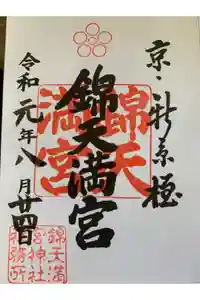 京・新京極
錦天満宮
錦天
満宮
令和元年八月廿四日
錦天満
宮神社
社務所